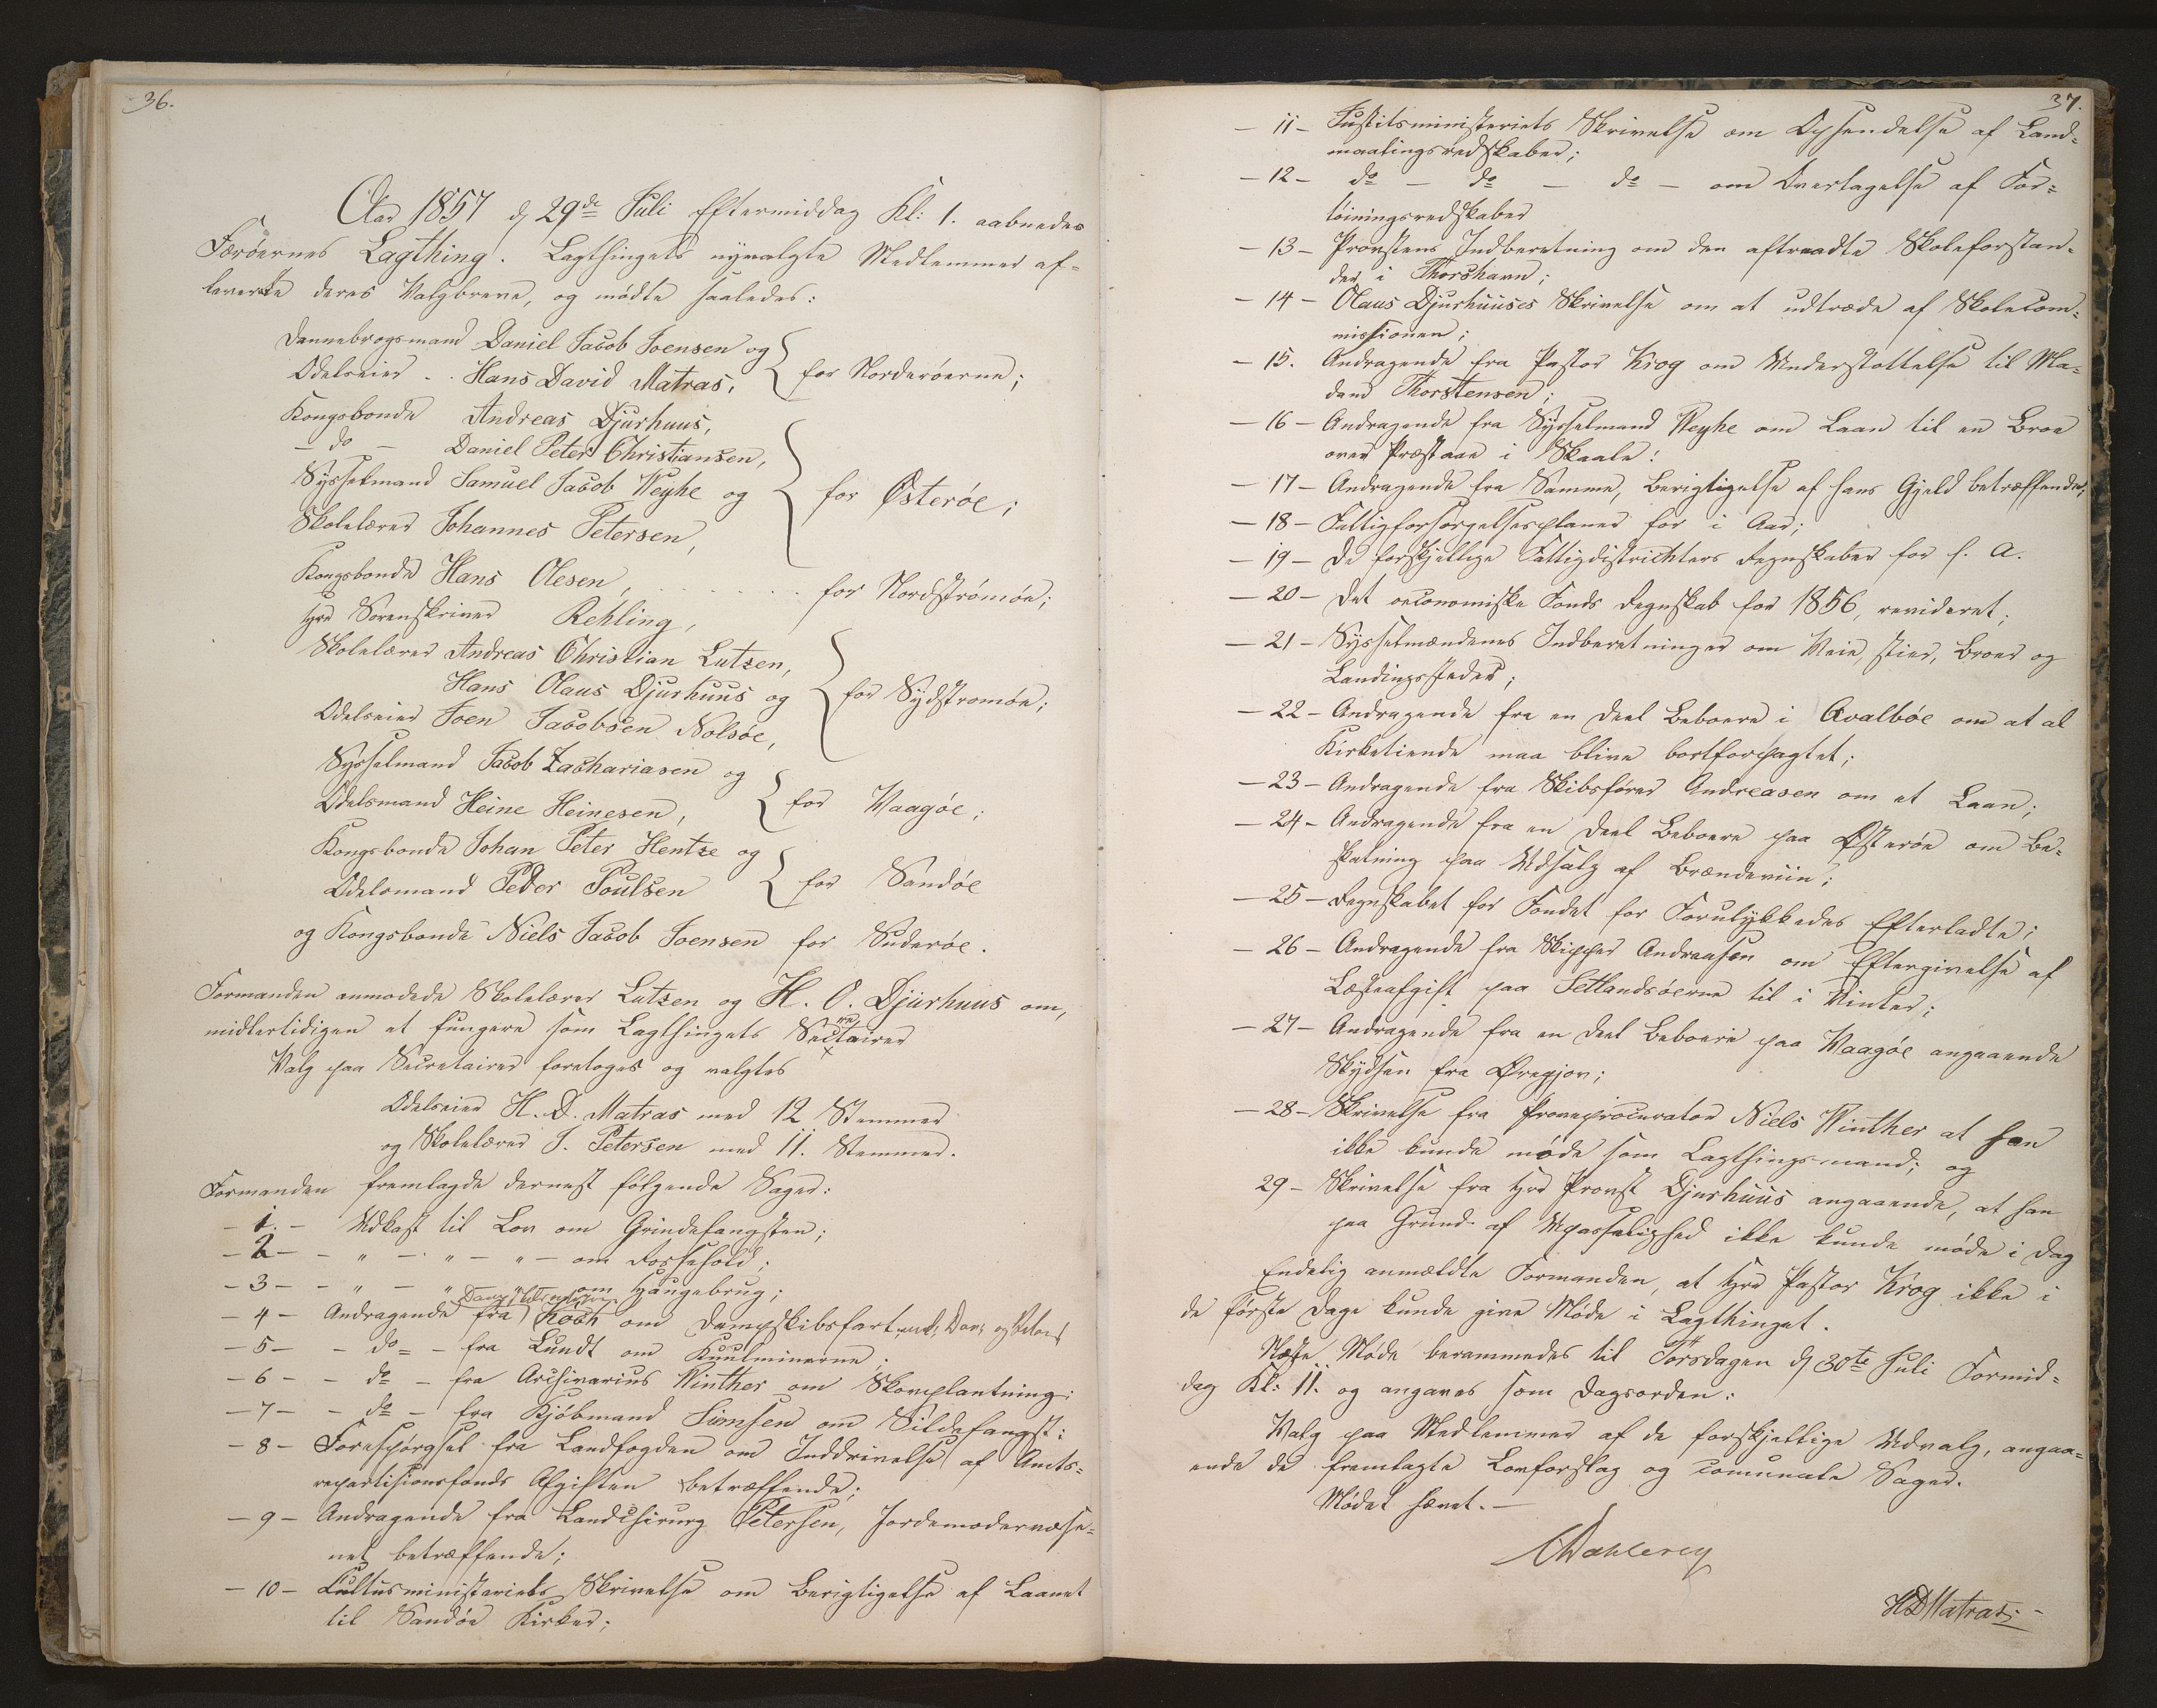 36.
Aar 1857 d 29de Juli Eftermiddag Kl: 1. aabnedes
Færöernes Lagthing. Lagthingets nyvalgte Medlemmer af-
leverte deres Valgbreve, og mødte saaledes:
Dannebrogsmand Daniel Jacob Joensen og
Odelseier .. Hans David Matras, for Norderöerne;
Kongsbonde Andreas Djurhuus,
- do - Daniel Peter Christiansen,
Sysselmand Samuel Jacob Weyhe og for Østeröe;
Skolelærer Johannes Petersen,
Kongsbonde Hans Olesen, . . . . . . . for Nordströmöe;
Hrr Sorenskriver Rehling,
Skolelærer Andreas Christian Lutzen,
Hans Olaus Djurhuus og for Sydstromöe;
Odelseier Joen Jacobsen Nolsöe,
Sysselmand Jacob Zachariasen og
Odelsmand Heine Heinesen, for Vaagöe;
Kongsbonde Johan Peter Hentze og
Odelsmand Peder Poulsen for Sandöe
og Kongsbonde Niels Jacob Joensen for Suderöe.
Formanden anmodede Skolelærer Lutzen og H. O. Djurhuus om,
midlertidigen at fungere som Lagthingets Sectairer
re
Valg paa Secretairer foretoges og valgtes
Odelseier H. D. Matras med 12 Stemmer
og Skolelærer J. Petersen med 11. Stemmer.
Formanden fremlagde dernest fölgende Sager:
- 1. - Udkast til Lov om Grindefangsten;
- 2 - - " - " - " - om Fossehold;
- 3 - - " - " om Haugebrug;
- 4 - Andragende fra Koch om Dampskibsfart
- 5 - - do - - fra Lundt om Kuulminerne;
- 6 - - do - fra Archivarius Winther om Skovplantning;
- 7 - - do - fra Kjöbmand Simsen om Sildefangst;
- 8 - Forespörgsel fra Landfogden om Inddrivelse af Amts-
repartisionsfonds Afgiften betræffende;
- 9 - Andragende fra Landchirurg Petersen, Jordemodervæse-
net betræffende;
- 10 - Cultusministeriets Skrivelse om Berigtigelse af Laanet
til Sandöe Kirker;
37.
- 11 - Justitsministeriets Skrivelse om Opsendelse af Land-
maalingsredskaber;
- 12 - do - do - do - om Overtagelse af For-
töiningsredskaber
- 13 - Provstens Indberetning om den aftraadte Skoleforstan-
der i Thorshavn;
- 14 - Olaus Djurhuuses Skrivelse om at udtræde af Skolecom-
missionen;
- 15. Andragende fra Pastor Krog om Understøttelse til Ma-
dam Thorstensen;
- 16 - Andragende fra Sysselmand Weyhe om Laan til en Broe
over Præstaae i Skaale!
- 17 - Andragende fra Samme, Berigtigelse af hans Gjeld betræffende;
- 18 - Fattigforsörgelsesplaner for i Aar;
- 19 - De forskjellige Fattigdistrichters Regnskaber for f. A.
- 20 - Det oeconomiske Fonds Regnskab for 1856, revideret;
- 21 - Sysselmændenes Indberetninger om Veie, stier, Broer og
Landingssteder;
- 22 - Andragende fra en Deel Beboere i Qvalböe om at al
Kirketiende maa blive bortforpagtet;
- 23 - Andragende fra Skibsförer Andreasen om et Laan;
- 24 - Andragende fra en Deel Beboere paa Østeröe om Be-
skatning paa Udsalg af Brændeviin;
- 25 - Regnskabet for Fondet for Forulykkedes Efterladte;
- 26 - Andragende fra Skipper Andreasen om Eftergivelse af
Læsteafgift paa Setlandsöerne til i Vinter;
- 27 - Andragende fra en Deel Beboere paa Vaagöe angaaende
Skydsen fra Øregjov;
- 28 - Skrivelse fra Prøveprocurator Niels Winther at han
ikke kunde møde som Lagthingsmand; og
29 - Skrivelse fra Hrr Provst Djurhuus angaaende, at han
paa Grund af Upasselighed ikke kunde møde i Dag
Endelig anmeldte Formanden, at Hrr Pastor Krog ikke i
de förste Dage kunde give Møde i Lagthinget.
Næste Møde berammedes til Torsdagen d 30te Juli Formid-
dag Kl: 11. og angaves som Dagsorden:
Valg paa Medlemmer af de forskjellige Udvalg, angaa-
ende de fremlagte Lovforslag og comunale Sager.
Mødet hævet. -
Dahlerup
HDMatras. -